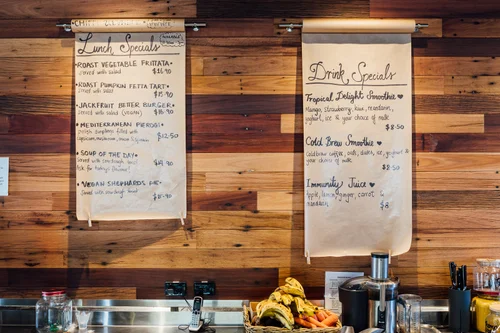 Lunch Specials
ROAST VEGETABLE FRITATA
served with salad $16.90
ROAST PUMPKIN FETTA TART
served with salad $15.90
JACKFRUIT BETER BURGER
served with salad (vegan) $18.90
MEDITERRANEAN PIEROGI
filled with
$12.50
SOUP OF THE DAY
served with sourdough bread $14.90
Ask for today's flavour!
VEGAN SHEPHARDS PIE
served with sourdough bread
Drink Specials
Tropical Delight Smoothie
Mango, strawberry, kiwi, mandarin,
yoghurt, ice & your choice of milk
$8.50
Cold Brew Smoothie
Cold brew coffee, oats, dates, ice, yoghurt &
your choice of milk
$8.50
Immunity Juice
apple, lemon, ginger, carrot &
mandarin $8